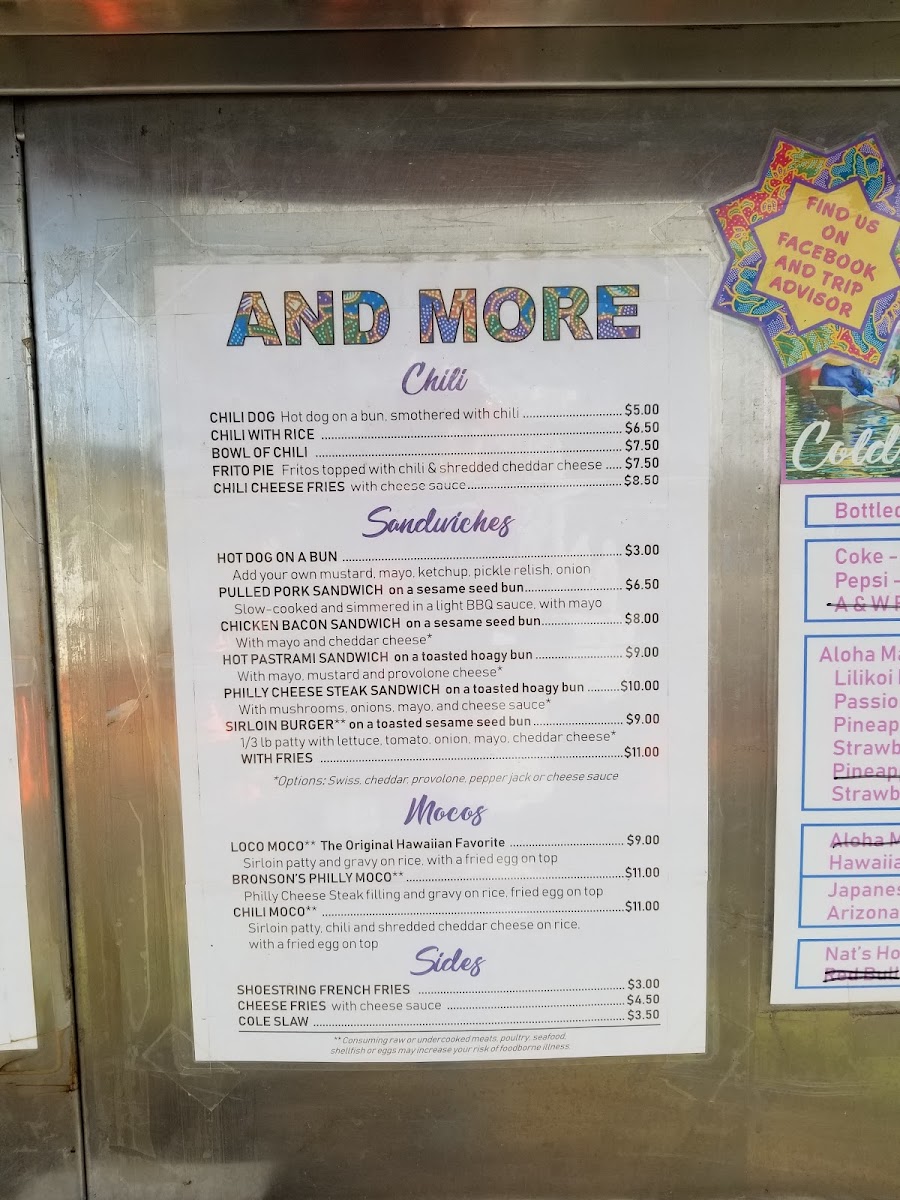 AND MORE
Chili
CHILI DOG Hot dog on a bun, smothered with chili $5.00
CHILI WITH RICE $6.50
BOWL OF CHILI $7.50
FRITO PIE Fritos topped with chili & shredded cheddar cheese $7.50
CHILI CHEESE FRIES with cheese sauce $8.50
Sandwiches
HOT DOG ON A BUN $3.00
Add your own mustard, mayo, ketchup, pickle relish, onion
PULLED PORK SANDWICH on a sesame seed bun $6.50
Slow-cooked and simmered in a light BBQ sauce, with mayo
CHICKEN BACON SANDWICH on a sesame seed bun $8.00
With mayo and cheddar cheese*
HOT PASTRAMI SANDWICH on a toasted hoagy bun $9.00
With mayo, mustard and provolone cheese*
PHILLY CHEESE STEAK SANDWICH on a toasted hoagy bun $10.00
With mushrooms, onions, mayo, and cheese sauce*
SIRLOIN BURGER** on a toasted sesame seed bun $9.00
1/3 lb patty with lettuce, tomato, onion, mayo, cheddar cheese*
WITH FRIES $11.00
*Options: Swiss, cheddar, provolone, pepper jack or cheese sauce
Mocos
LOCO MOCO** The Original Hawaiian Favorite $9.00
Sirloin patty and gravy on rice, with a fried egg on top
BRONSON'S PHILLY MOCO** $11.00
Philly Cheese Steak filling and gravy on rice, fried egg on top
CHILI MOCO** $11.00
Sirloin patty, chili and shredded cheddar cheese on rice,
with a fried egg on top
Sides
SHOESTRING FRENCH FRIES $3.00
CHEESE FRIES with cheese sauce $4.50
COLE SLAW $3.50
**Consuming raw or undercooked meats, poultry, seafood,
shellfish or eggs may increase your risk of foodborne illness.
FIND US
ON
FACEBOOK
AND TRIP
ADVISOR
Cold
Bottled
Coke -
Pepsi -
A & W
Aloha
Lilikoi
Passio
Pineap
Strawb
Pineap
Strawb
Aloha
Hawaiia
Japanes
Arizona
Nat's Ho
Red Bull